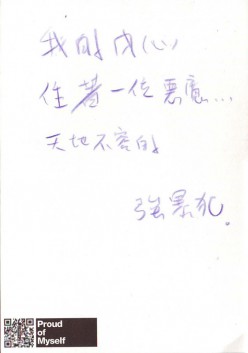 我的内心
住著一位惡魔...
天地不容的
強暴犯。
Proud
of
Myself